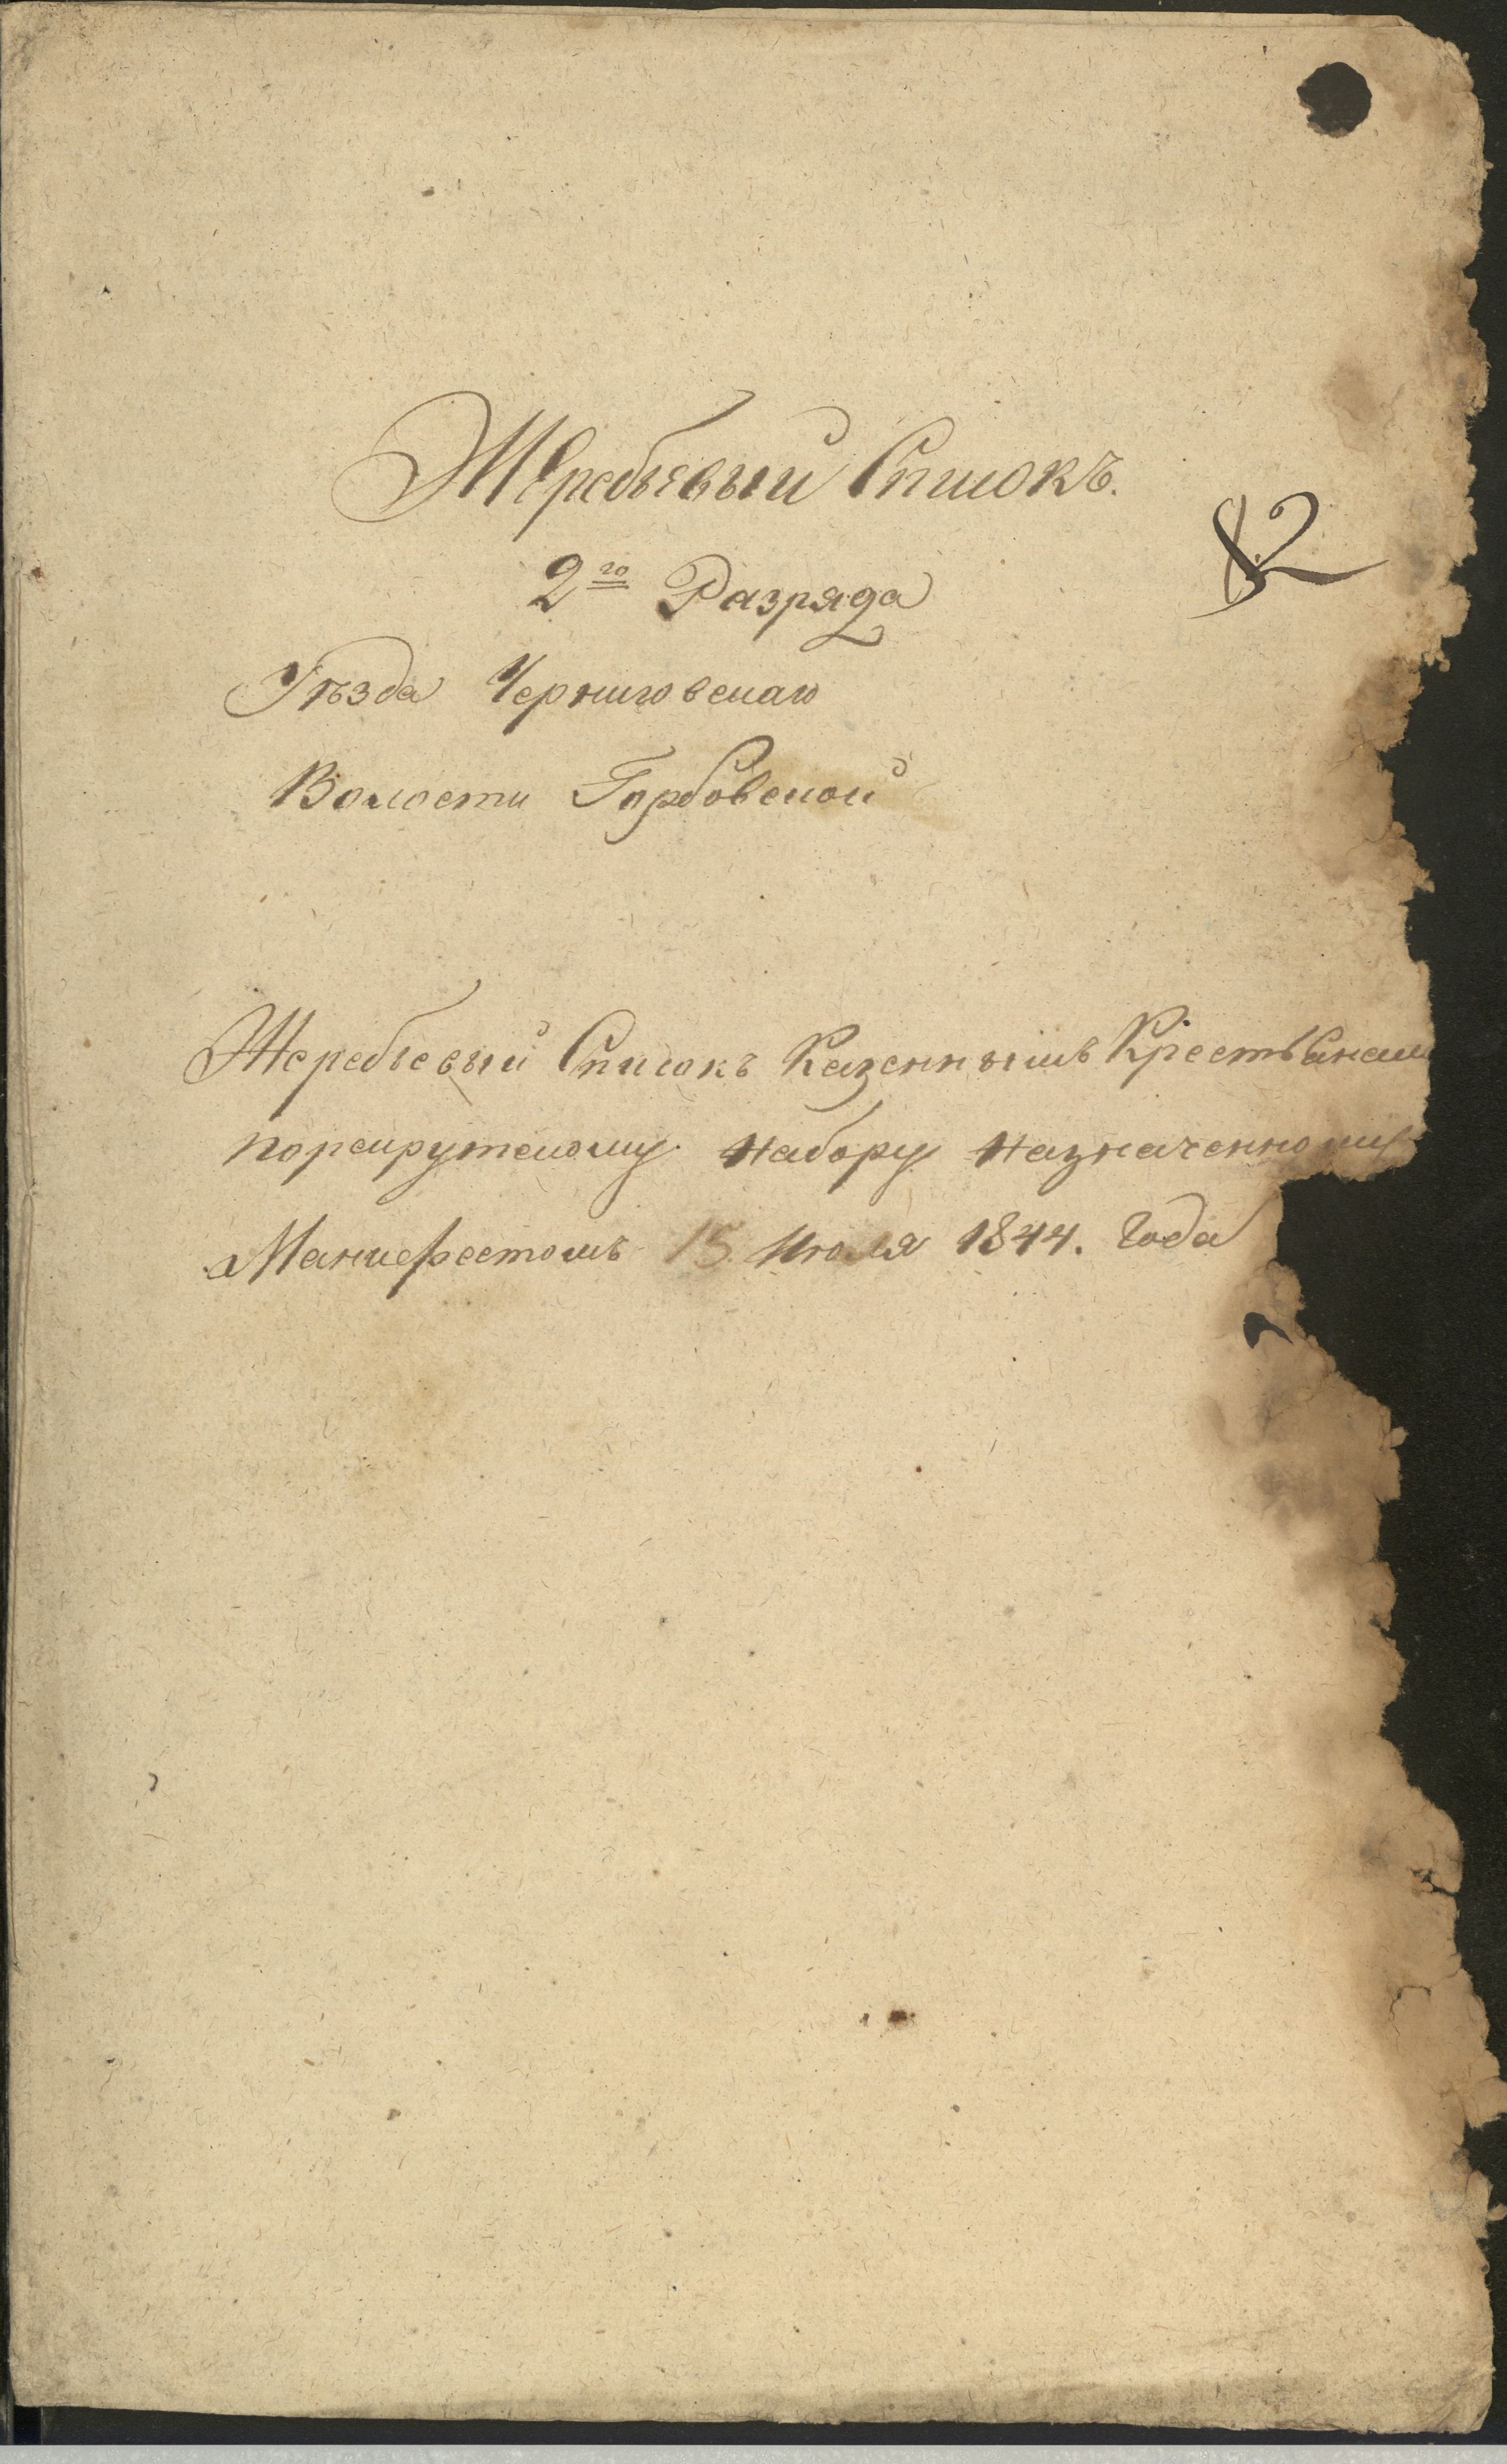 Жеребьевый Списокъ.
82
2го Разряда
Уѣзда Черниговскаго
Волости Горбовской
Жеребьевый Списокъ Казеннымъ Крестьянам
порекрутскому набору назначенному
Манифестомъ 15. Июля 1844. Года